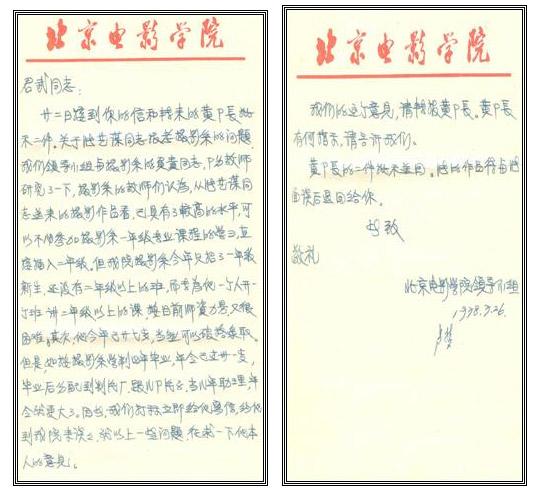 北京电影学院
君武同志:
廿二日接到你的信和转来的黄部长批
示二件。关于张艺谋同志报考摄影系的问题
我们领导小组与摄影系的负责同志,部分教师
研究了一下,摄影系的教师们认为,从张艺谋同
志送来的摄影作品看,已具有了较高的水平,可
以不够参加摄影系一年级专业课程的学习,直
接插入二年级。但我院摄影系今年只招了一年级
新生,还没有二年级以上的班,而要为他一个人开
个班讲二年级以上的课,按目前师资力量又很
困难。其次,他今年已廿七岁,当然可以破格录取。
但是,如按摄影系学制四年毕业,年令已过卅一岁,
毕业后分配到制片厂,跟几部片子,当几年助理,年
令就更大了。因此,我们打算立即给他写信,约他
到我院来谈谈,就以上一些问题,征求一下他本
人的意见。
北京电影学院
我们的这个意见,请转报黄部长。黄部长
有何指示,请告诉我们。
黄部长的二件批示退回。张的作品待与张
面谈后退回给你。
此致
敬礼
北京电影学院领导小组
1978.9.26.